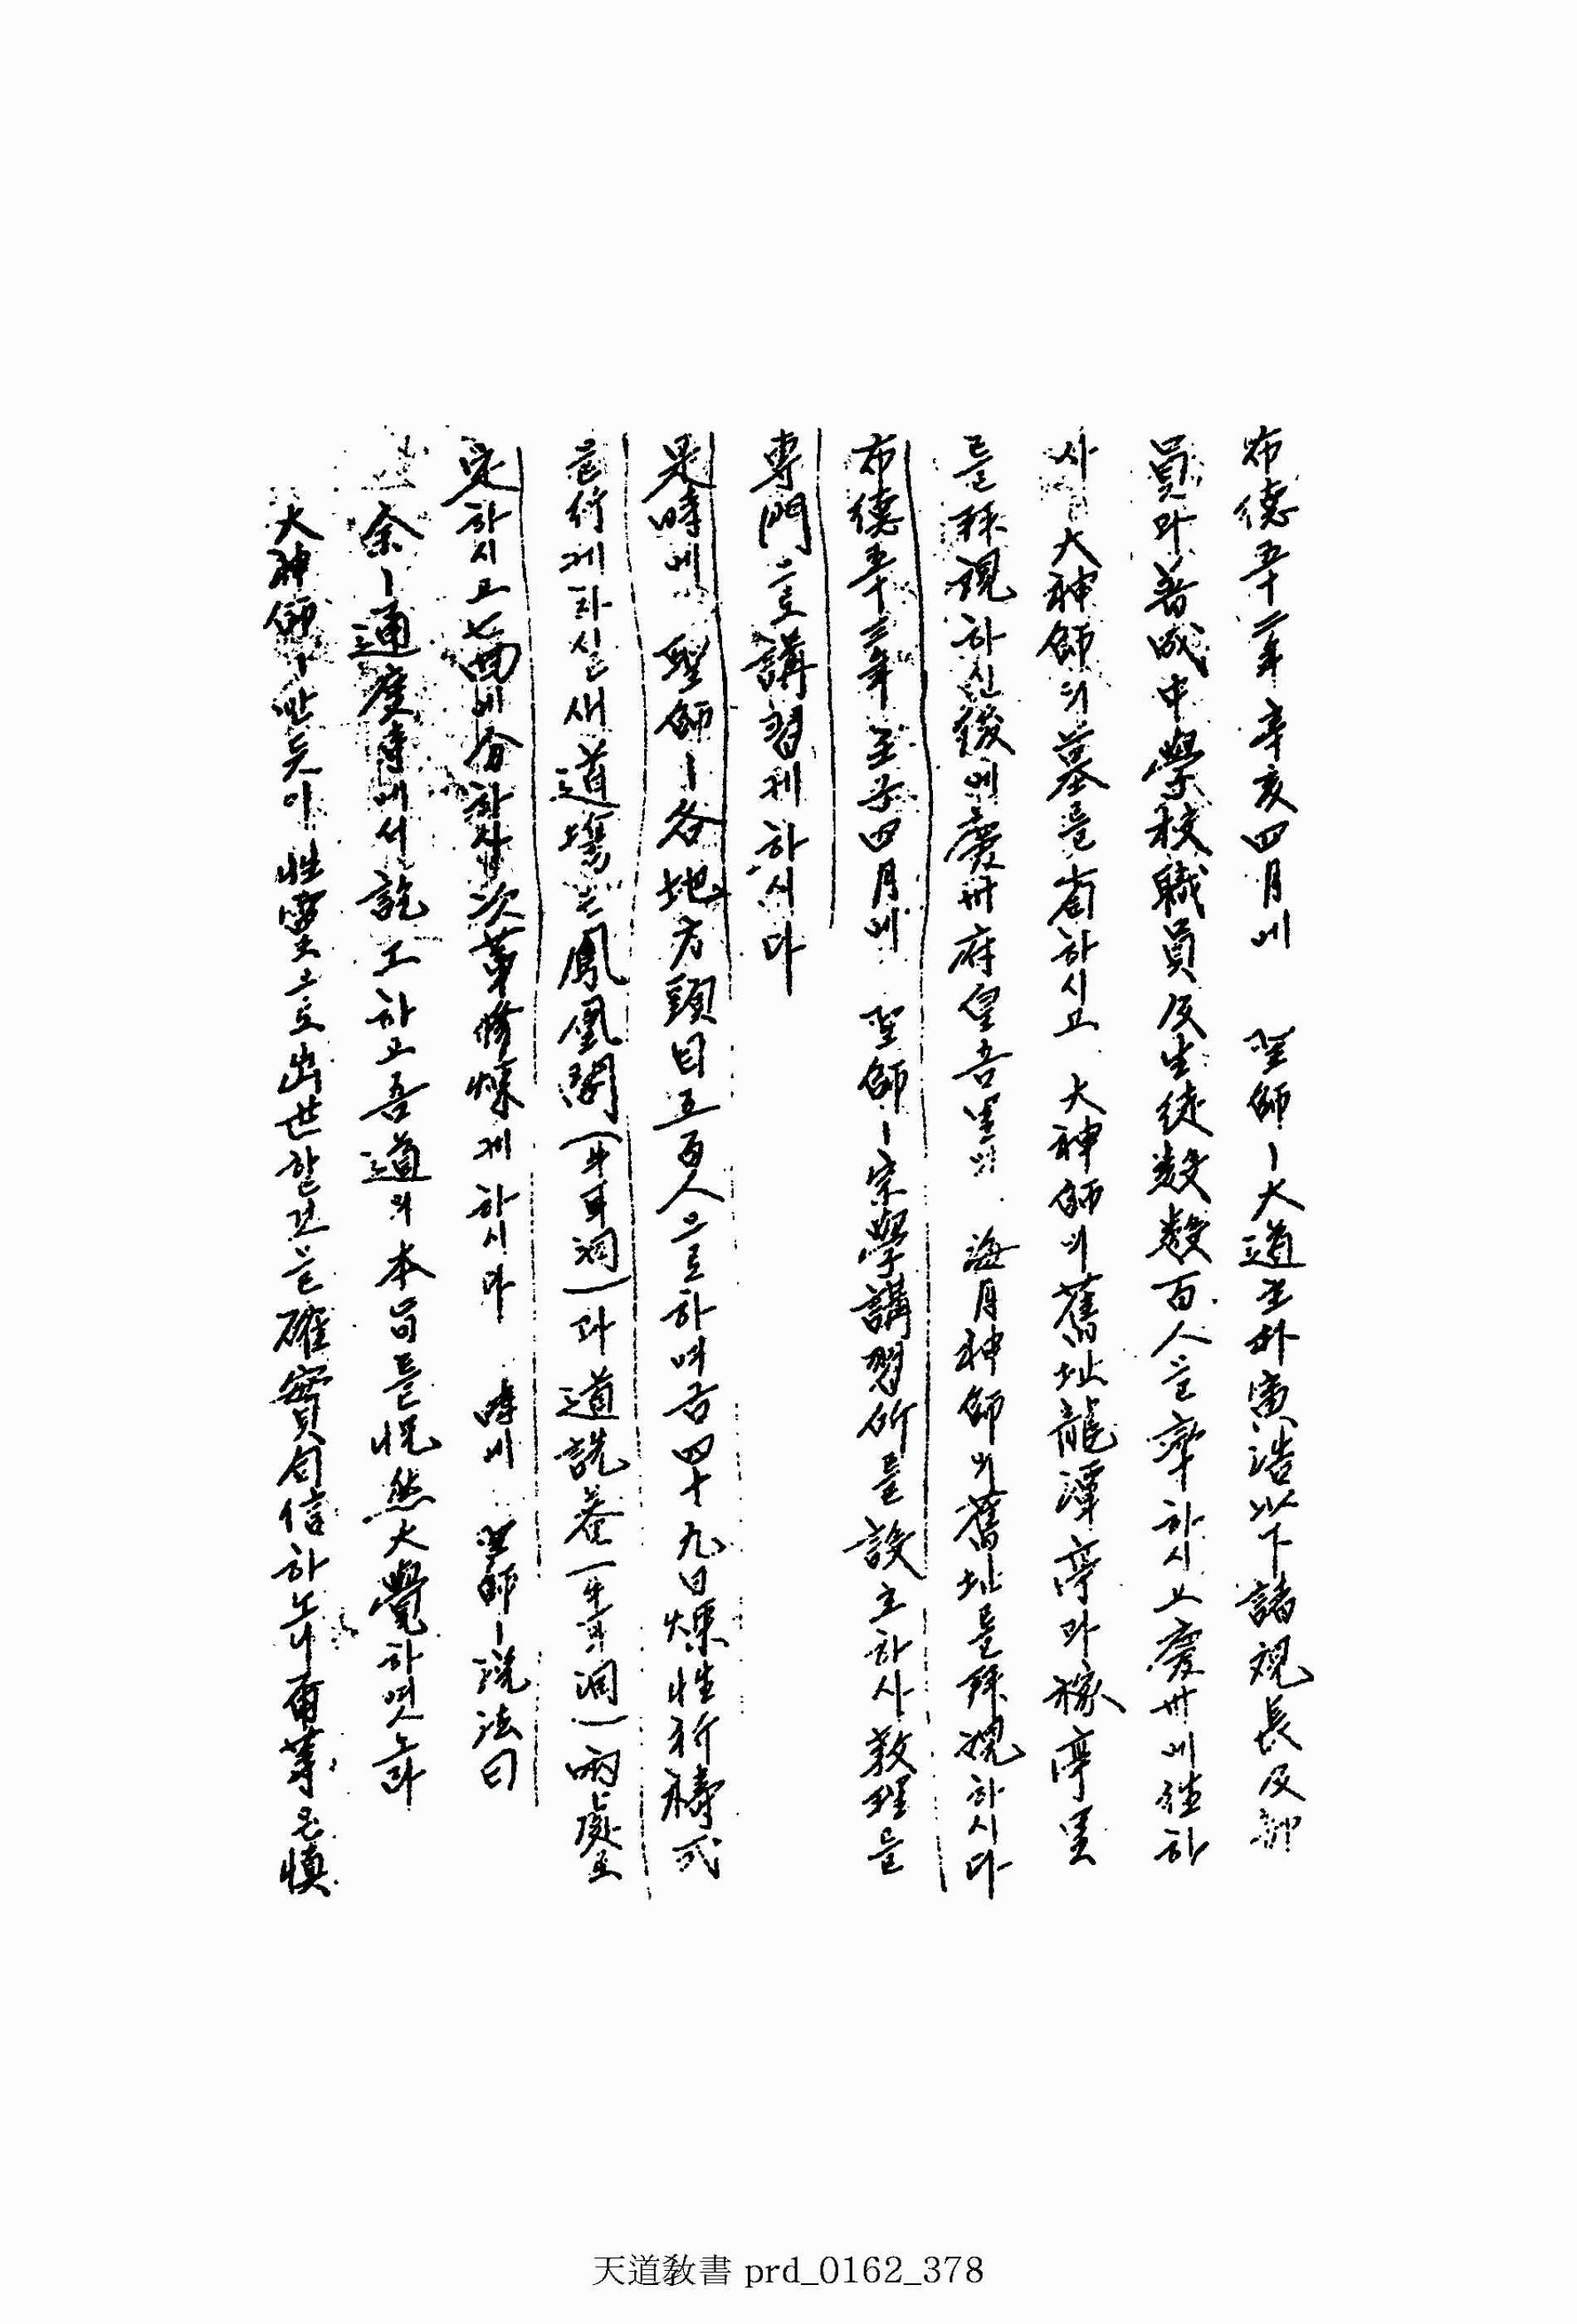 布德五十二年辛亥四月에 聖師ㅣ大道主朴寅浩以下諸觀長及部
員과普成中學校職員及生徒數數百人을率하시고慶州에往하
사 大神師의墓를省하시고 大神師의舊址龍潭亭과稼亭里
를拜觀하신後에慶州府皇吾里의 海月神師의舊址를拜觀하시다
布德五十三年壬子四月에 聖師ㅣ宗學講習所를設立하사敎理를
專門으로講習케하시다
是時에 聖師ㅣ各地方頭目五百人으로하여금四十九日煉性祈禱式
을行케하실새道場은鳳凰閣(牛耳洞)과道詵菴(牛耳洞)兩處로
定하시고七回에分하사次第修煉케하시다 時에 聖師ㅣ說法曰
余ㅣ通度寺에서訖工하고吾道의本旨를怳然大覺하엿노라
大神師ㅣ 듯이性靈으로出世할것은確實自信하노니爾等은愼
天道敎書 prd_0162_378